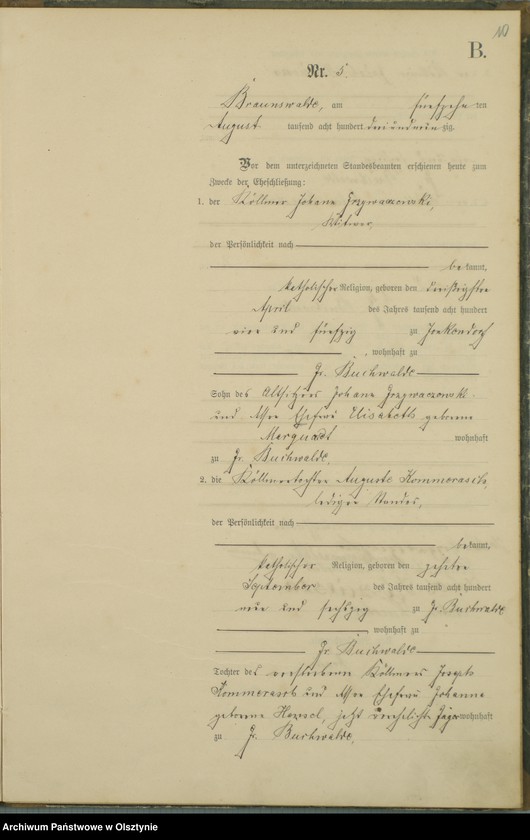 10
B.
Nr. 5.
Braunswalde, am fünfzehn ten
August tausend acht hundert drei und neun zig.
Vor dem unterzeichneten Standesbeamten erschienen heute zum
Zwecke der Eheschließung:
1. der Köllmer Johann
Witwer,
der Persönlichkeit nach
bekannt,
katholischer Religion, geboren den dreißigsten
April des Jahres tausend acht hundert
vier und fünfzig zu Jonkendorf
, wohnhaft zu
Gr. Buchwalde
Sohn des Altsitzers Johann
und dessen Ehefrau Elisabeth geborene
Marquardt wohnhaft
zu Gr. Buchwalde.
2. die Köllmertochter Auguste Kommorasch,
ledigen Standes,
der Persönlichkeit nach
bekannt,
katholischer Religion, geboren den zehnten
September des Jahres tausend acht hundert
und sechszig zu Gr. Buchwalde
, wohnhaft zu
Gr. Buchwalde
Tochter des verstorbenen Köllmers Joseph
Kommorasch und dessen Ehefrau Johanna
geborene jetzt verehelichte wohnhaft
zu Gr. Buchwalde.
Archiwum Państwowe w Olsztynie